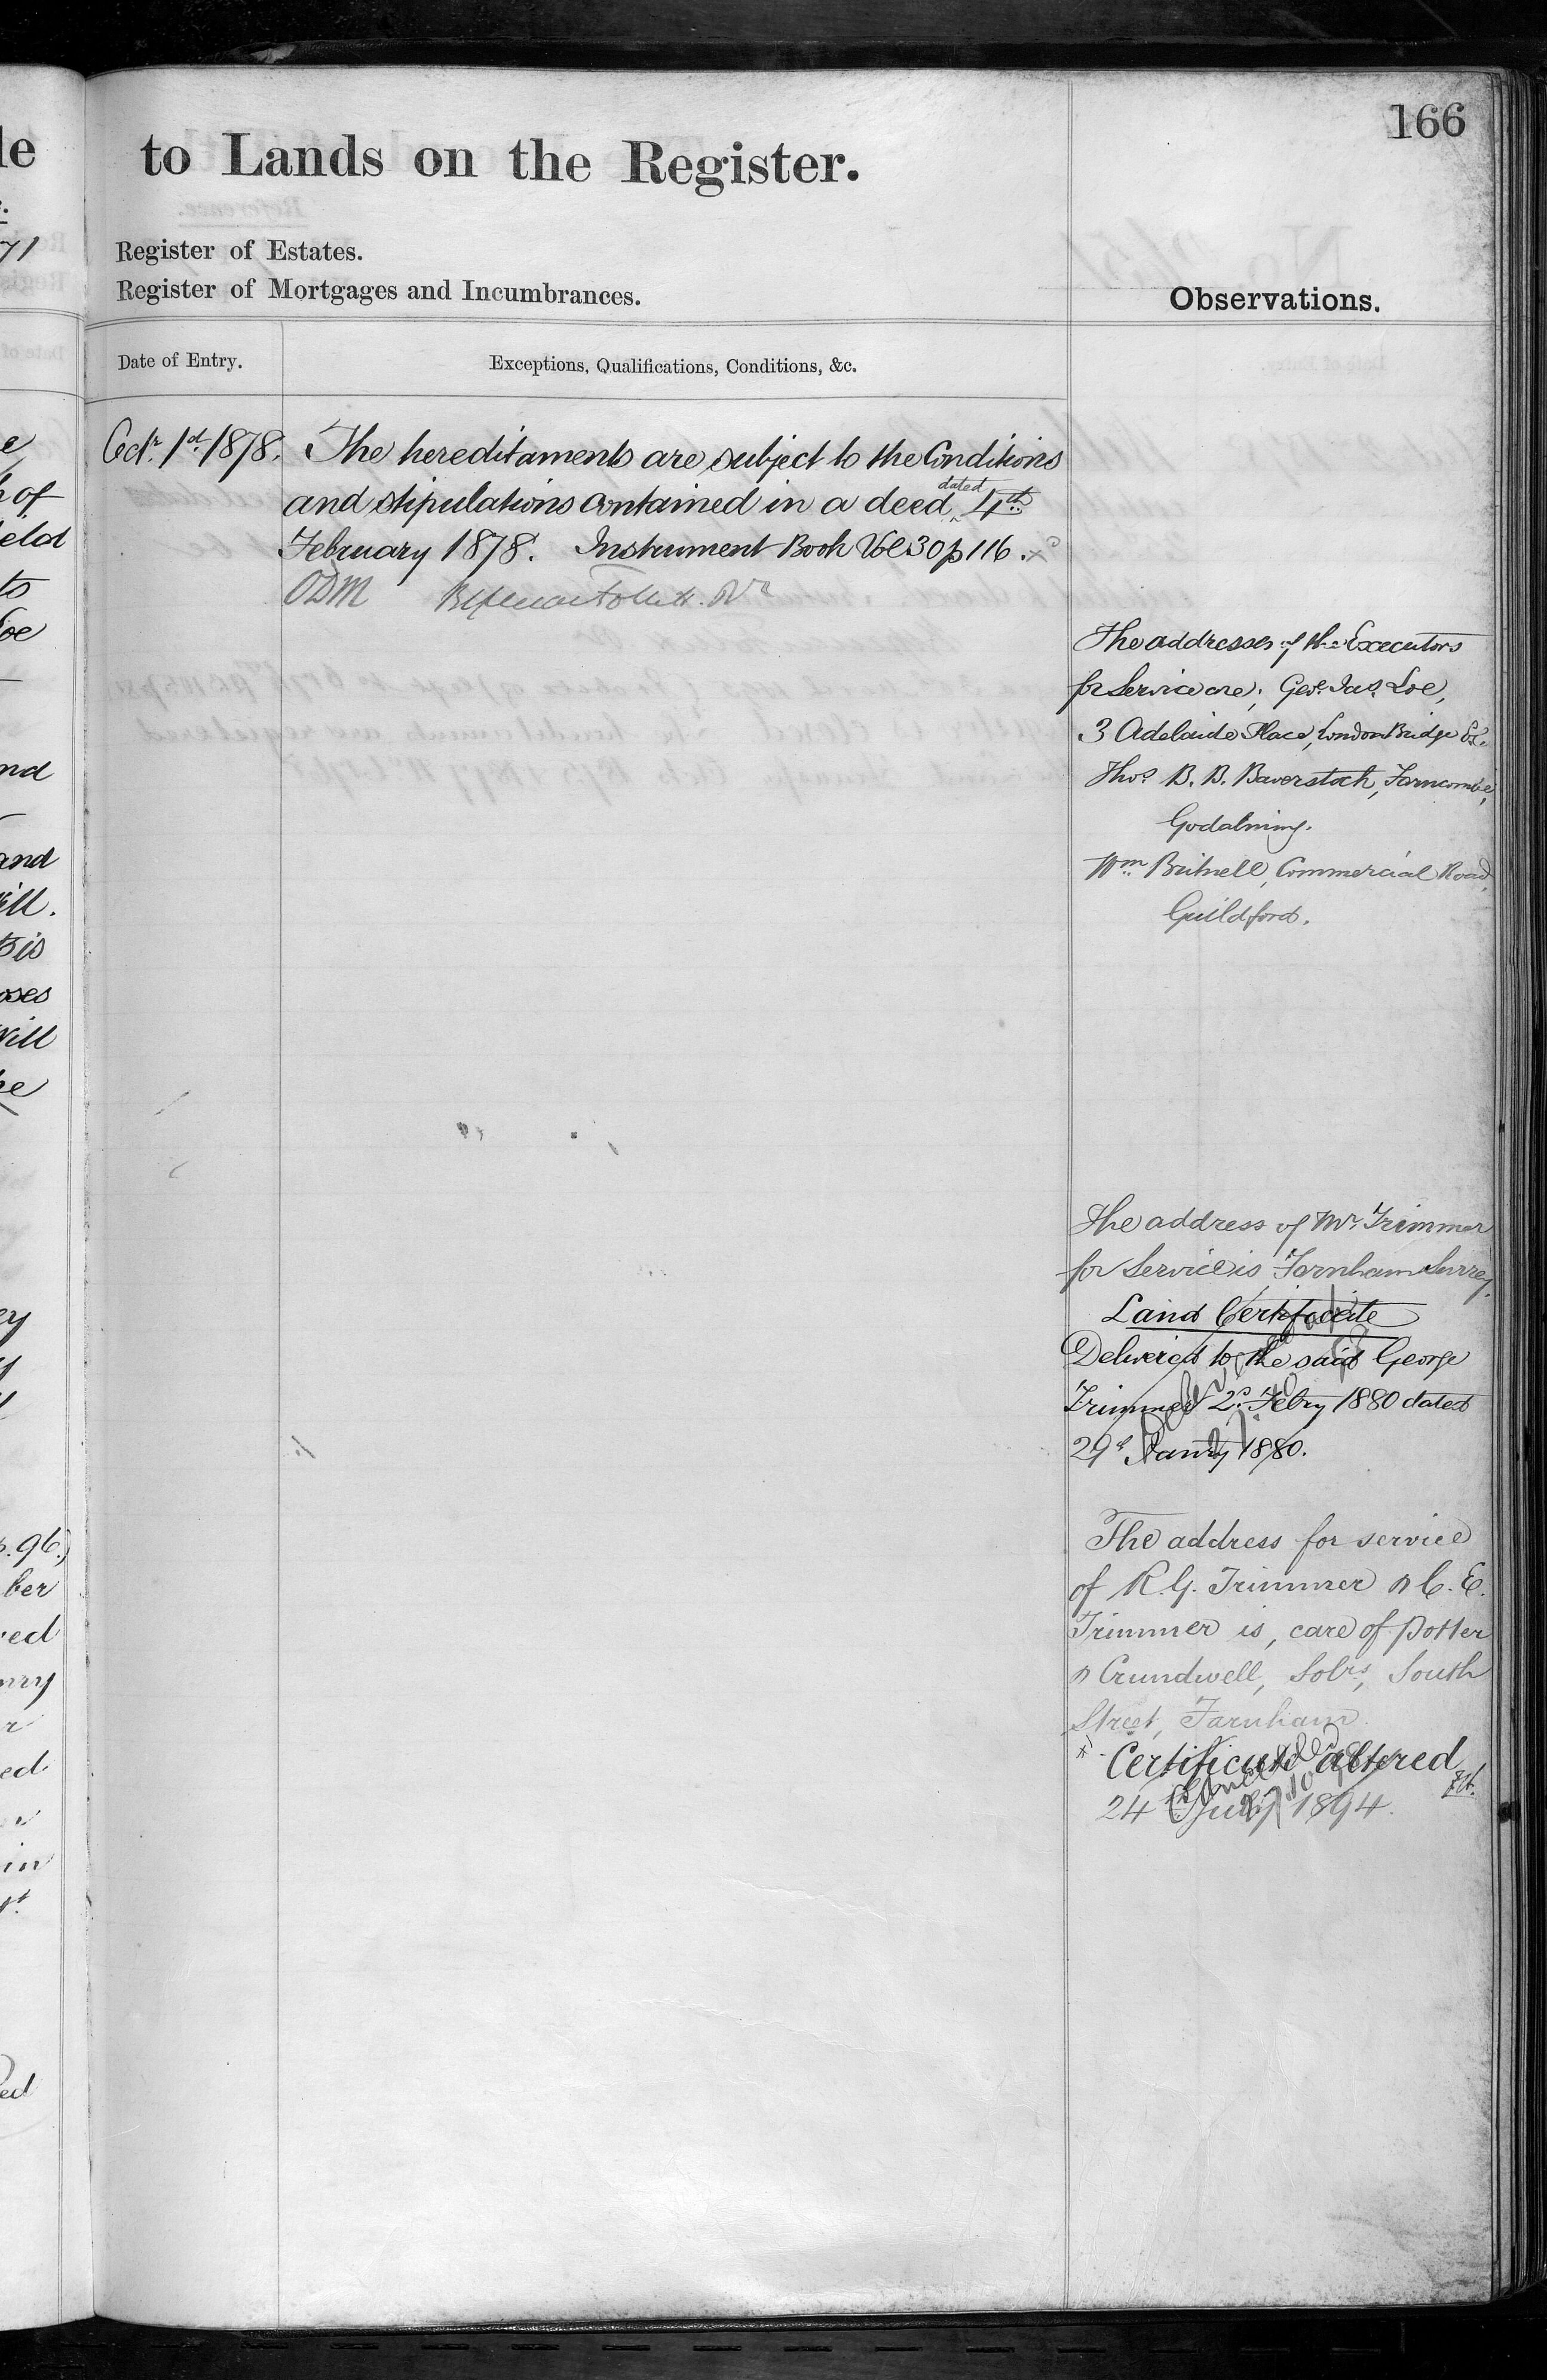 166
to Lands on the Register.
Register of Estates.
Register of Mortgages and Incumbrances.
Observations.
Date of Entry.
Exceptions, Qualifications, Conditions, &c.
Octr. 1st 1878. The hereditaments are subject to the Conditions
and stipulations contained in a deed dated 4th
February 1878. Instrument Book Vol 30 p 116. x
ODM
The addresses of the Executors
for Service are; Geo. Jas. Loe,
3 Adelaide Place, London Bridge E.C.
Thos. B. B. Baverstock, Farncombe,
Godalming.
Wm. Britnell, Commercial Road,
Guildford.
The address of Mr. Trimmer
for Service is Farnham Surrey.
Land Certificate
Delivered to the said George
Trimmer 2d. Febry 1880 dated
29th Janry 1880.
The address for service
of R. G. Trimmer & C. E.
Trimmer is, care of Potter
& Crundwell, Solrs, South
Street, Farnham.
x Certificate altered
24th July 1894.
Cancelled
le
71
e
h of
ield
to
Loe
nd
and
ill.
is
oses
Will
ey
p. 96.)
ber
red
nry
r
ed
in
ed